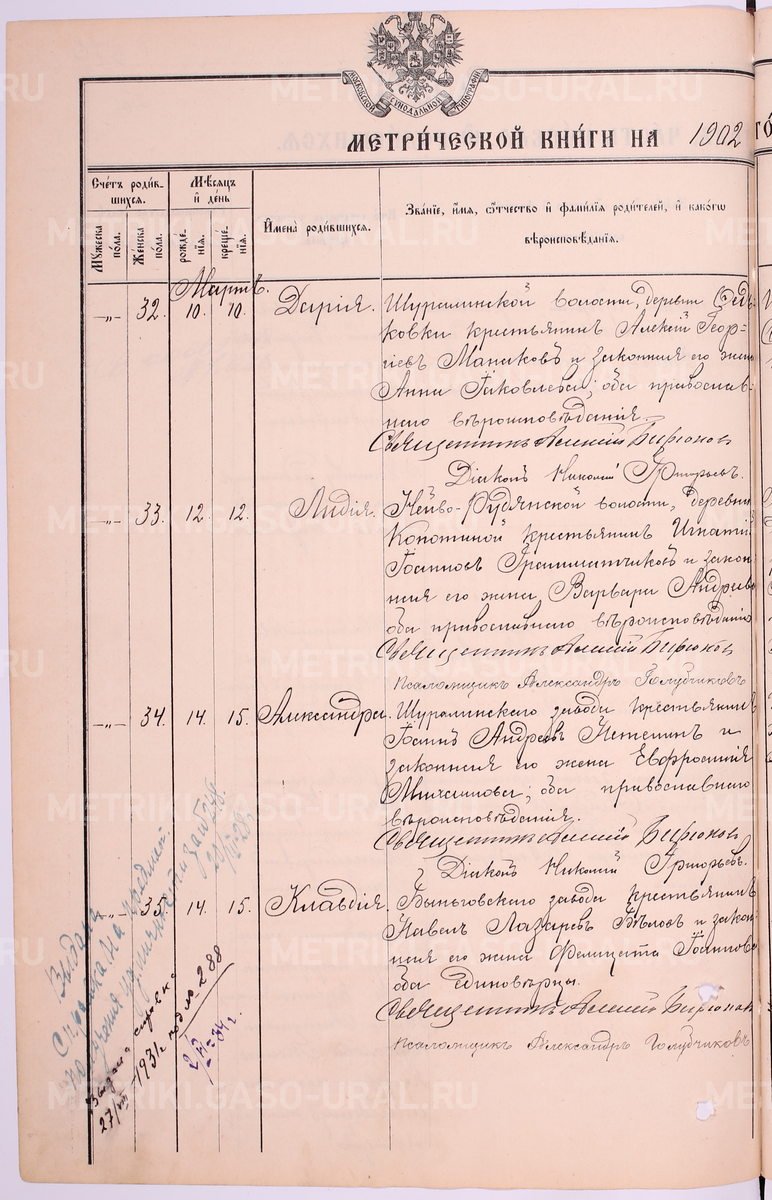 МОСКОВСКОЙ СѴНОДАЛЬНОЙ ТИПОГРАФІИ
МЕТРИ́ЧЕСКОЙ КНИ́ГИ НА 1902
Счетъ роди́в-
шихся.
Мѣсяцъ
и҆ де́нь
Мꙋжеска
по́ла.
Же́нска
по́ла.
рожде-
нїѧ.
креще-
нїѧ.
И҆мена̀ роди́вшихся.
Зва́нїе, и҆́мѧ, ѻ҆́тчество и҆ фами́лїѧ роди́телей, и҆ како́гѡ
вѣроисповѣ́данїѧ.
Мартъ.
—„— 32. 10. 10. Дарія. Шуралинской волости, деревни Ѳедь-
ковки крестьянинъ Алексій Геор-
гіевъ Маньковъ и законная его жена
Анна Іаковлева; оба православ-
наго вѣроисповѣданія.
Священникъ Алексій Бирюковъ
Діаконъ Николай Григорьевъ.
—„— 33. 12. 12. Лидія. Нейво-Рудянской волости, деревни
Копотиной крестьянинъ Игнатій
Іоанновъ Грамматчиковъ и закон-
ная его жена Варвара Андреева
оба православнаго вѣроисповѣданія
Священникъ Алексій Бирюковъ
псаломщикъ Александръ Голубчиковъ
—„— 34. 14. 15. Александра. Шуралинскаго завода крестьянинъ
Іоаннъ Андреевъ и
законная его жена Евфросинія
Михаилова; оба православнаго
вѣроисповѣданія.
Священникъ Алексій Бирюковъ
Діаконъ Николай Григорьевъ.
35. 14. 15. Клавдія. Быньговскаго завода крестьянинъ
Павелъ Лазаревъ Бѣловъ и закон-
ная его жена Фелицата Іоаннова
оба единовѣрцы.
Священникъ Алексій Бирюковъ
псаломщикъ Александръ Голубчиковъ
Выдана
справка на
получения
Выдана справка
27/VIII 1931 г. под № 288
METRIKI.GASO-URAL.RU